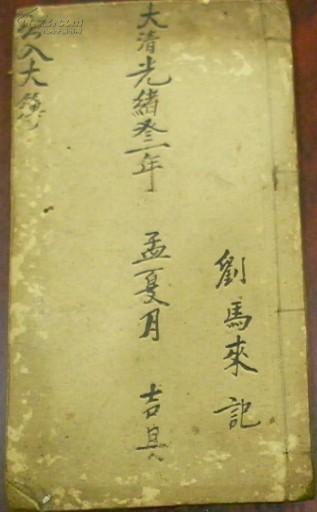 劉馬來記
大清光緒叁年 孟夏月 吉旦
入大